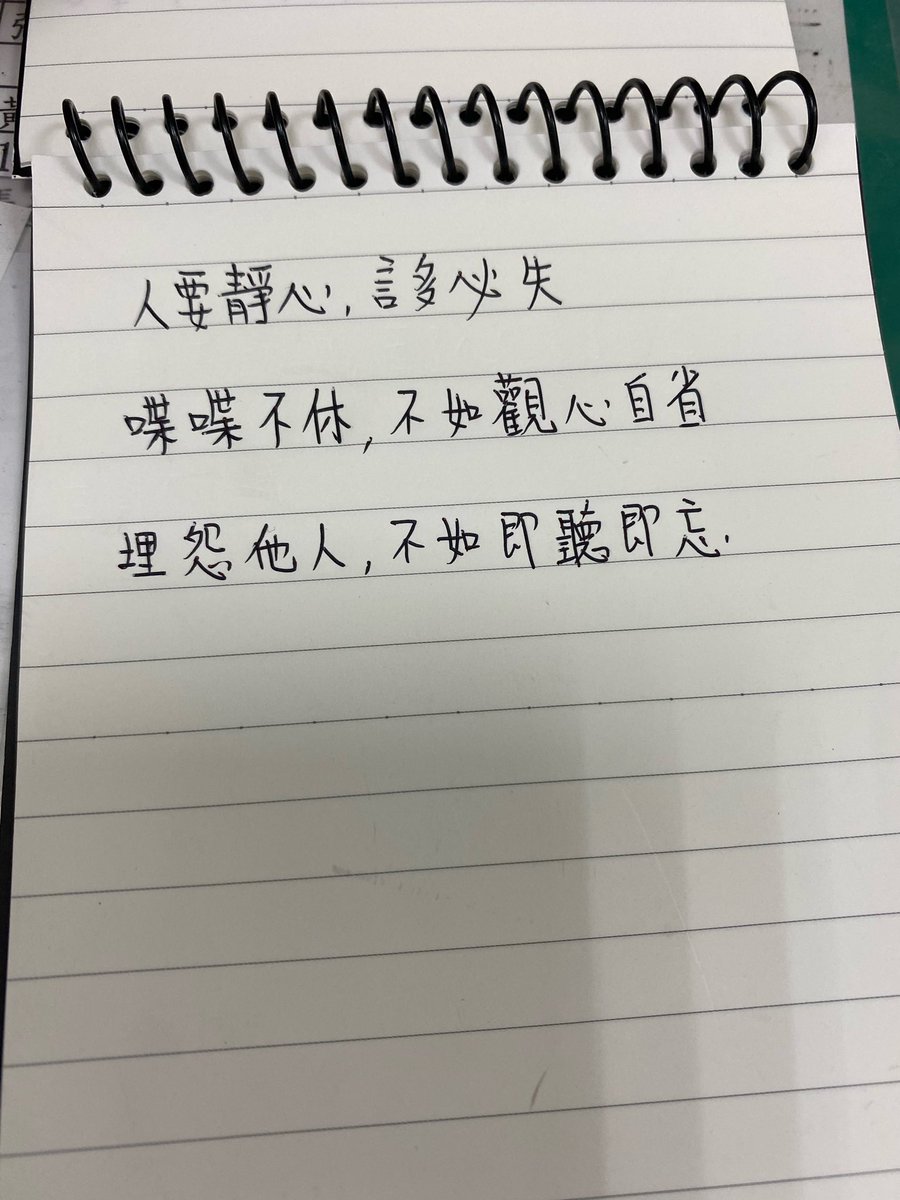 人要靜心,言多必失
喋喋不休,不如觀心自省
埋怨他人,不如即聽即忘.